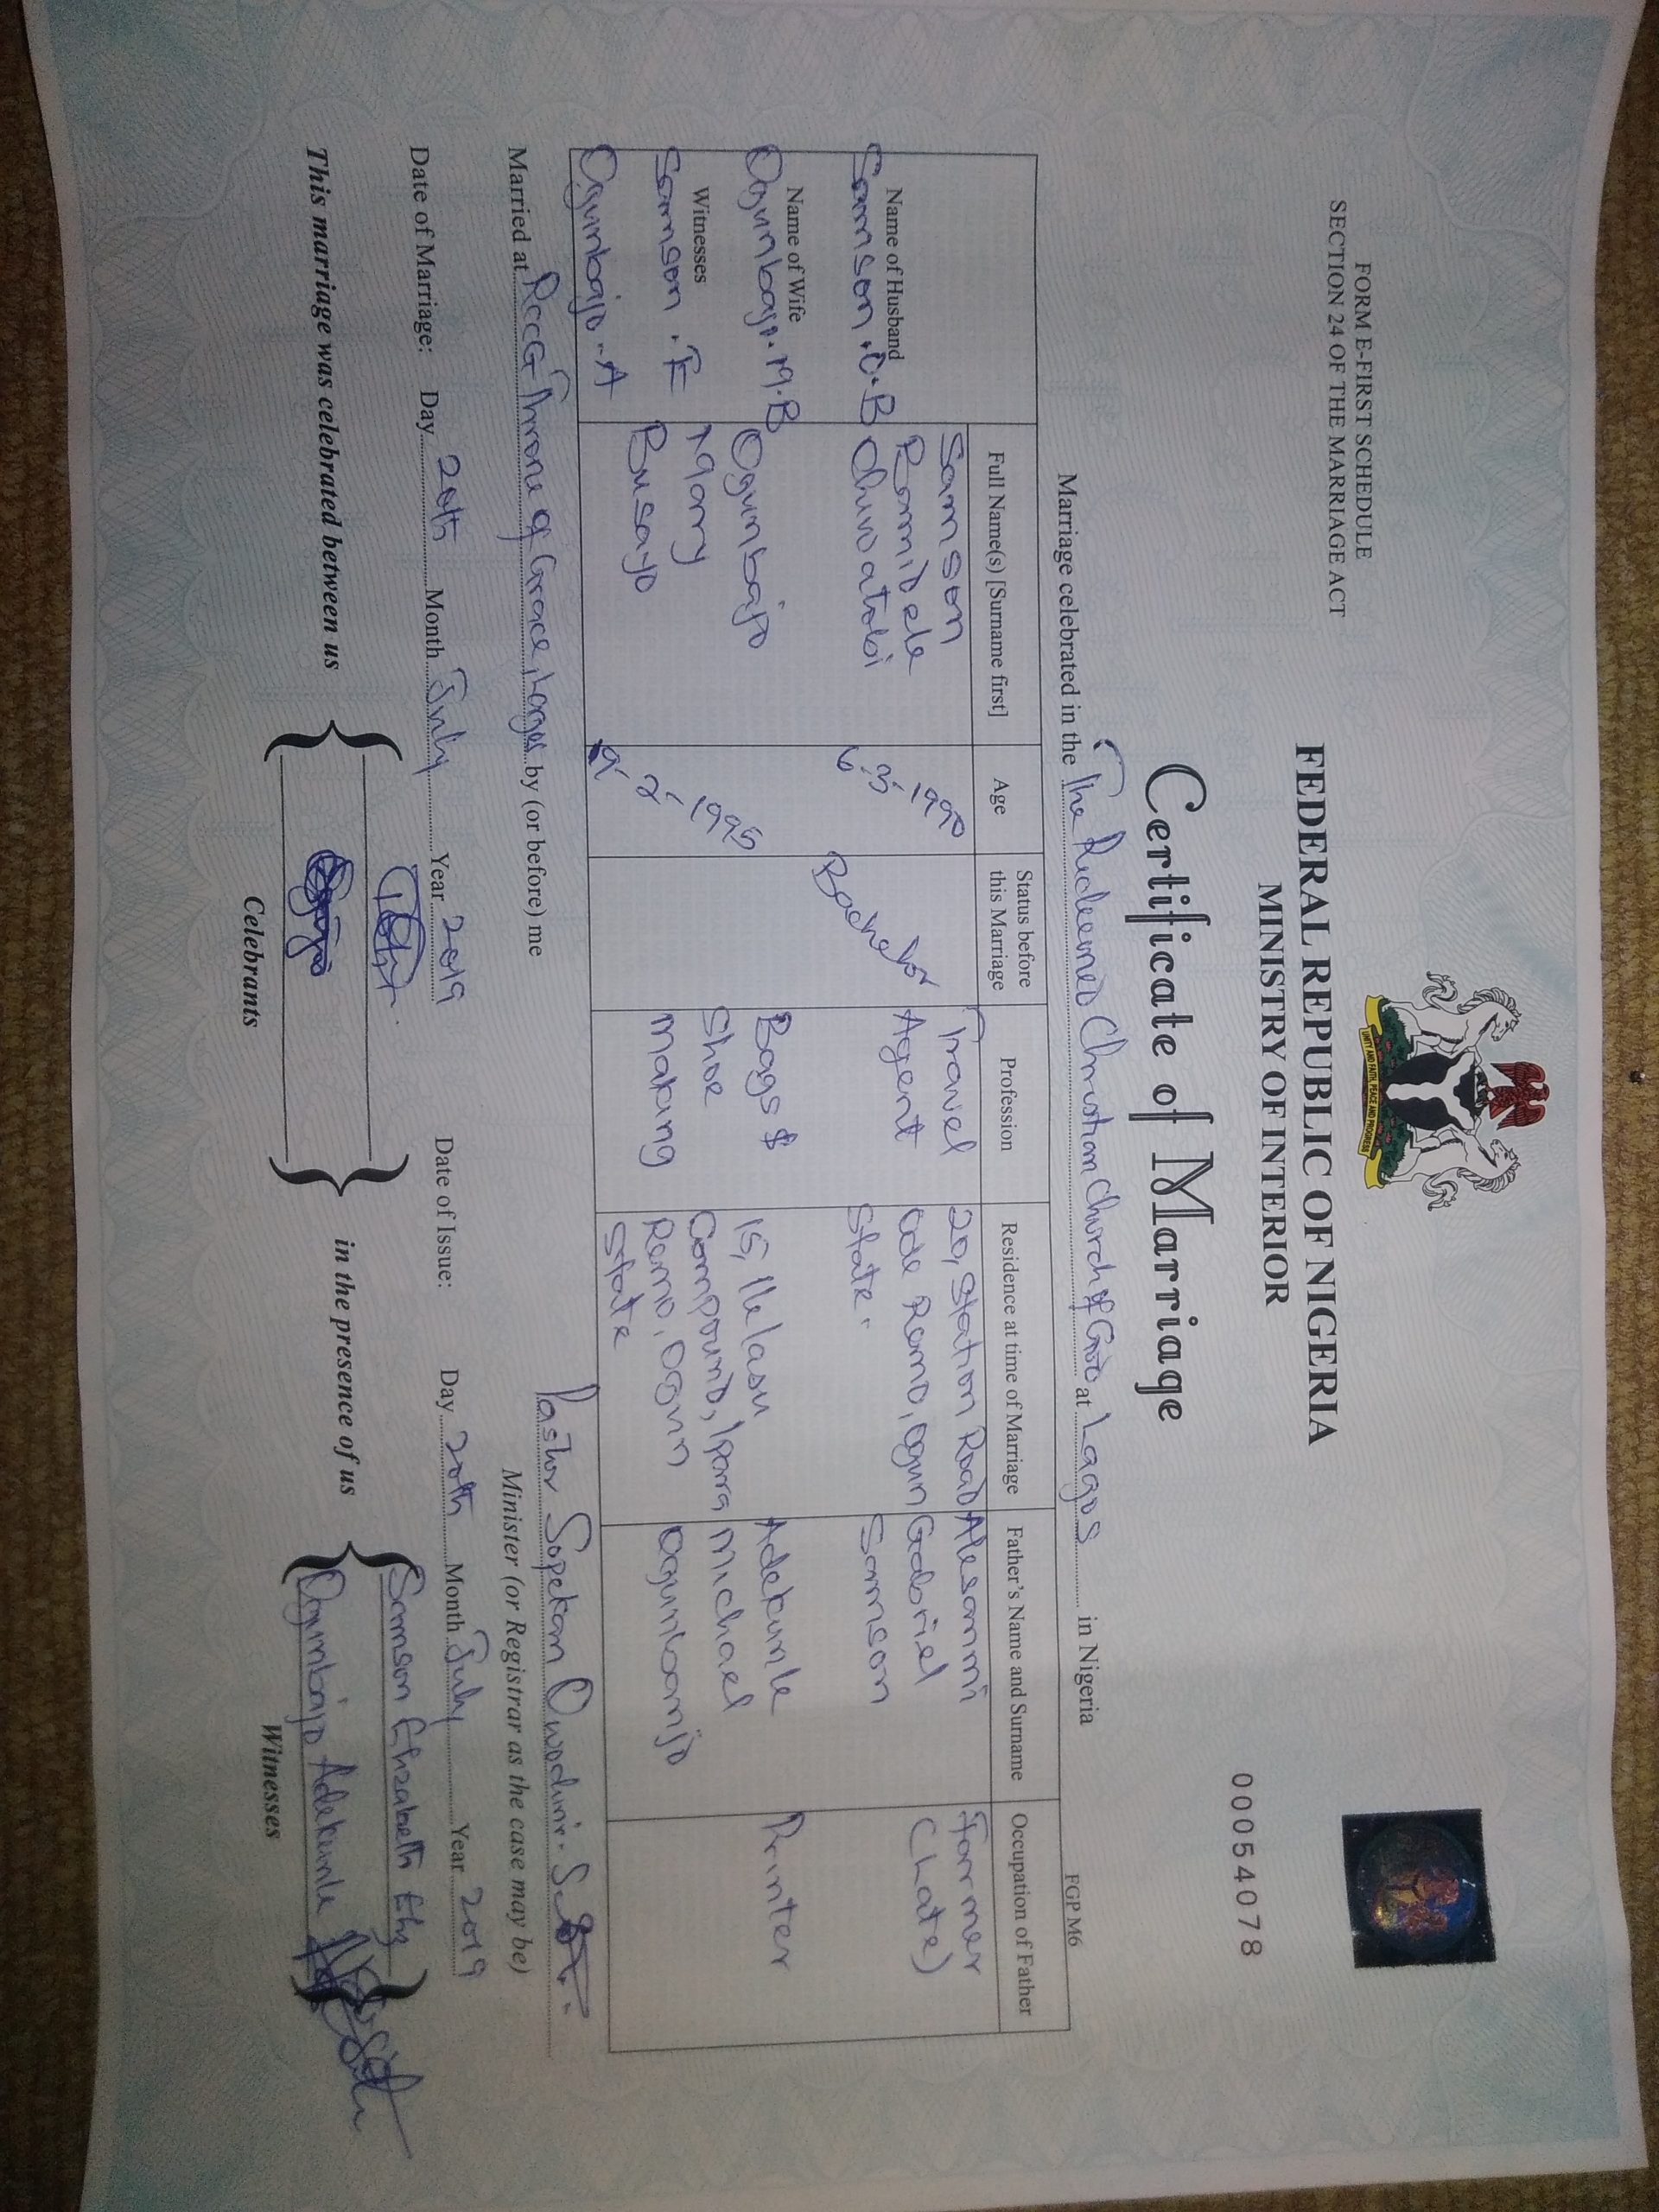 FORM E-FIRST SCHEDULE
SECTION 24 OF THE MARRIAGE ACT
UNITY AND FAITH, PEACE AND PROGRESS
FEDERAL REPUBLIC OF NIGERIA
MINISTRY OF INTERIOR
00054078
Certificate of Marriage
FGP M6
Marriage celebrated in the The Redeemed Christian Church of God at Lagos in Nigeria
Full Name(s) [Surname first] Age Status before this Marriage Profession Residence at time of Marriage Father's Name and Surname Occupation of Father
Name of Husband
Samson . O. B
Samson
Bamidele
Oluwatobi
6-3-1990
Bachelor
Travel
Agent
20, Station Road
Ode Remo, Ogun
State.
Alesanmi
Gabriel
Samson
Farmer
(Late)
Name of Wife
Ogunbajo. M. B
Ogunbajo
Mary
Busayo
9-2-1995
Bags &
Shoe
Making
15, Ilelasu
Compound, Ipara
Remo, Ogun
State
Adekunle
Michael
Ogunbanjo
Printer
Witnesses
Samson . E
Ogunbajo . A
Married at RCCG Throne of Grace, Lagos by (or before) me
Pastor Sopekan Owodunni. S.
Minister (or Registrar as the case may be)
Date of Marriage: Day 20th Month July Year 2019 Date of Issue: Day 20th Month July Year 2019
This marriage was celebrated between us
in the presence of us
Samson Elizabeth
Ogunbajo Adekunle
Celebrants
Witnesses